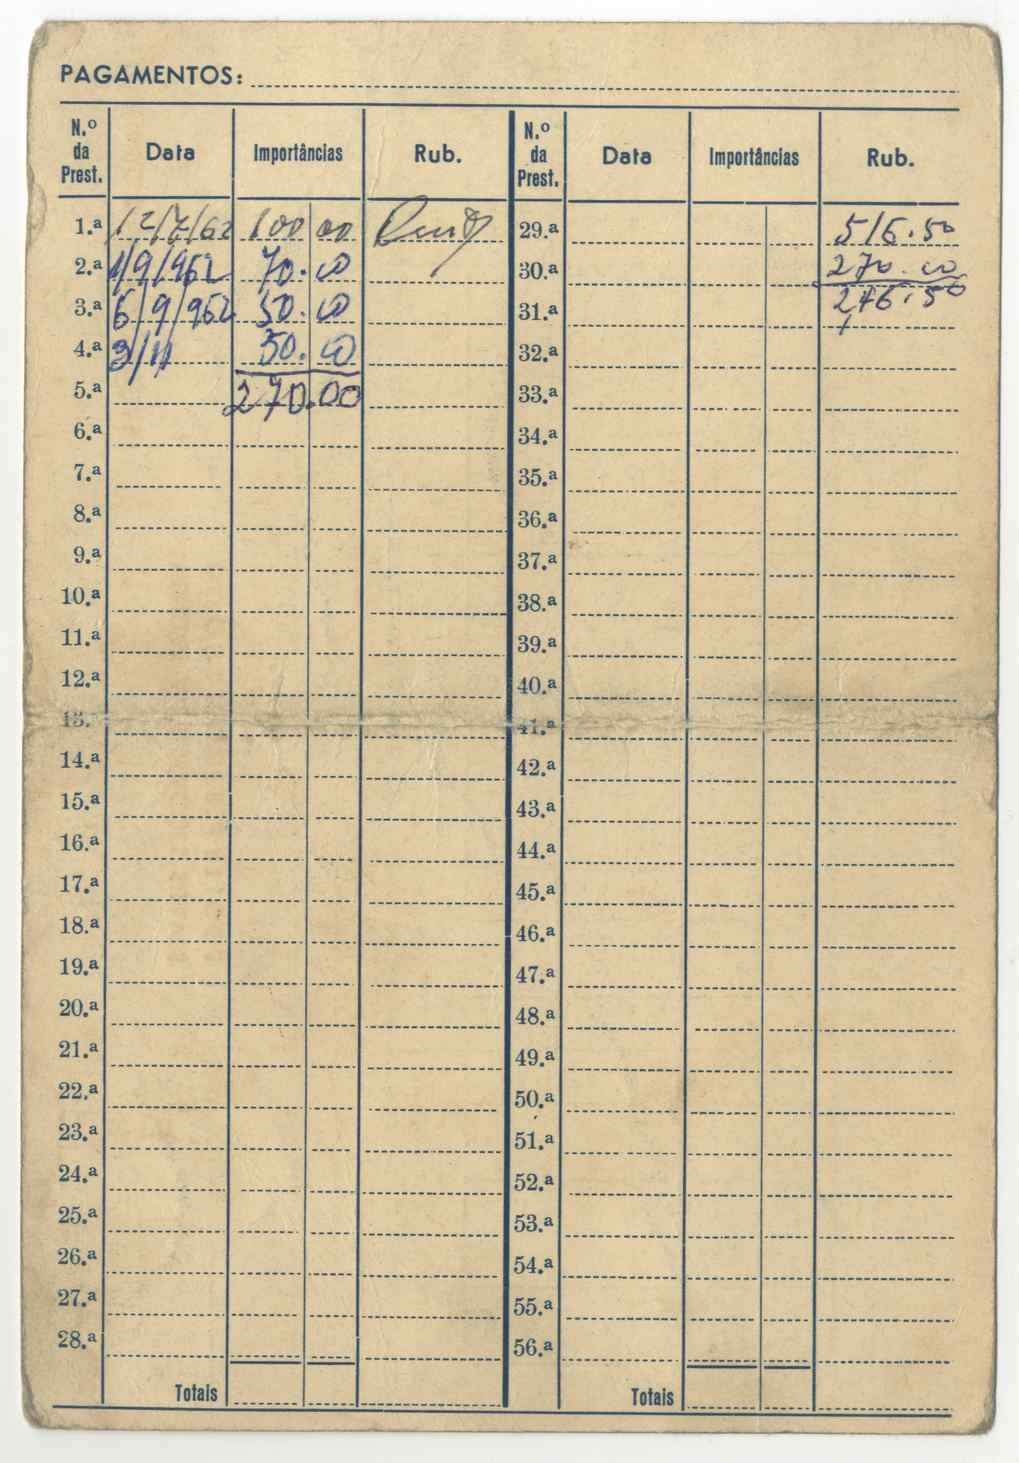 PAGAMENTOS:
N.º da Prest. Data Importâncias Rub. N.º da Prest. Data Importâncias Rub.
1.ª 12/7/62 100 00 29.ª 516.50
2.ª 1/9/962 70.00 30.ª 270.00
3.ª 6/9/962 50.00 31.ª 246.50
4.ª 3/11 50.00 32.ª
5.ª 270.00 33.ª
6.ª 34.ª
7.ª 35.ª
8.ª 36.ª
9.ª 37.ª
10.ª 38.ª
11.ª 39.ª
12.ª 40.ª
13.ª 41.ª
14.ª 42.ª
15.ª 43.ª
16.ª 44.ª
17.ª 45.ª
18.ª 46.ª
19.ª 47.ª
20.ª 48.ª
21.ª 49.ª
22.ª 50.ª
23.ª 51.ª
24.ª 52.ª
25.ª 53.ª
26.ª 54.ª
27.ª 55.ª
28.ª 56.ª
Totais Totais